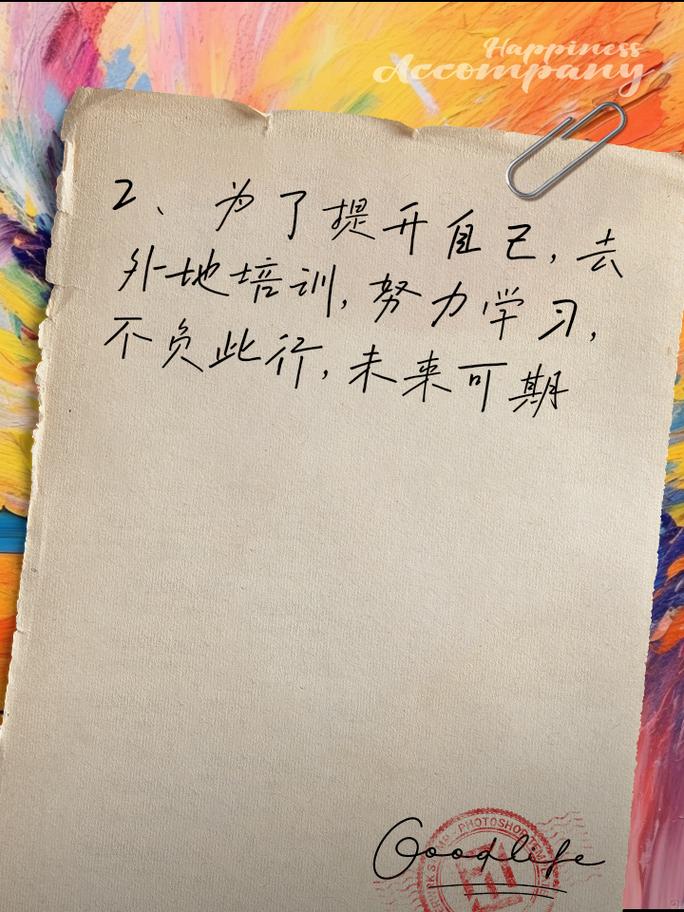 Happiness
Accompany
2、为了提升自己,去
外地培训,努力学习,
不负此行,未来可期
PHOTOSHOP
Goodlife